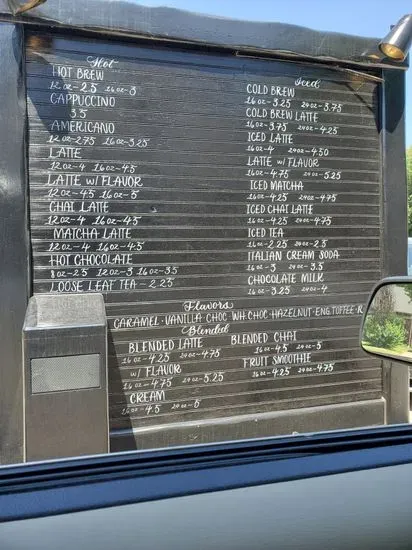 Hot
HOT BREW
12 oz - 2.5 16 oz - 3
CAPPUCCINO
3.5
AMERICANO
12 oz - 2.75 16 oz - 3.25
LATTE
12 oz - 4 16 oz - 4.5
LATTE w/ FLAVOR
12 oz - 4.5 16 oz - 5
CHAI LATTE
12 oz - 4 16 oz - 4.5
MATCHA LATTE
12 oz - 4 16 oz - 4.5
HOT CHOCOLATE
8 oz - 2.5 12 oz - 3 16 oz - 3.5
LOOSE LEAF TEA - 2.25
Iced
COLD BREW
16 oz - 3.25 24 oz - 3.75
COLD BREW LATTE
16 oz - 3.75 24 oz - 4.25
ICED LATTE
16 oz - 4 24 oz - 4.50
LATTE w/ FLAVOR
16 oz - 4.75 24 oz - 5.25
ICED MATCHA
16 oz - 4.25 24 oz - 4.75
ICED CHAI LATTE
16 oz - 4.25 24 oz - 4.75
ICED TEA
16 oz - 2.25 24 oz - 2.5
ITALIAN CREAM SODA
16 oz - 3 24 oz - 3.5
CHOCOLATE MILK
16 oz - 3.25 24 oz - 4
Flavors
CARAMEL · VANILLA · CHOC · WH.CHOC · HAZELNUT · ENG.TOFFEE ·
Blended
BLENDED LATTE
16 oz - 4.25 24 oz - 4.75
w/ FLAVOR
16 oz - 4.75 24 oz - 5.25
CREAM
16 oz - 4.5 24 oz - 5
BLENDED CHAI
16 oz - 4.5 24 oz - 5
FRUIT SMOOTHIE
16 oz - 4.25 24 oz - 4.75